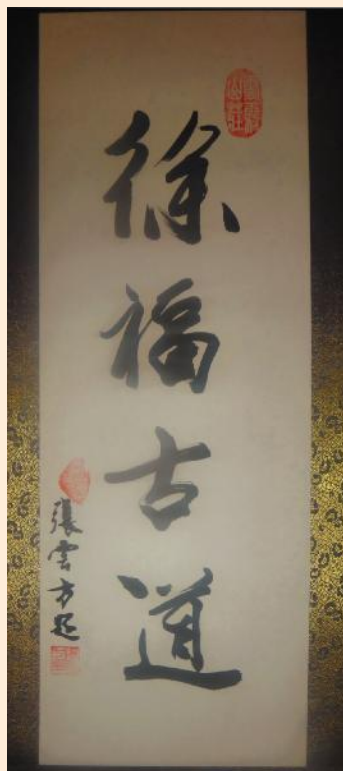 徐福古道
張雲方題